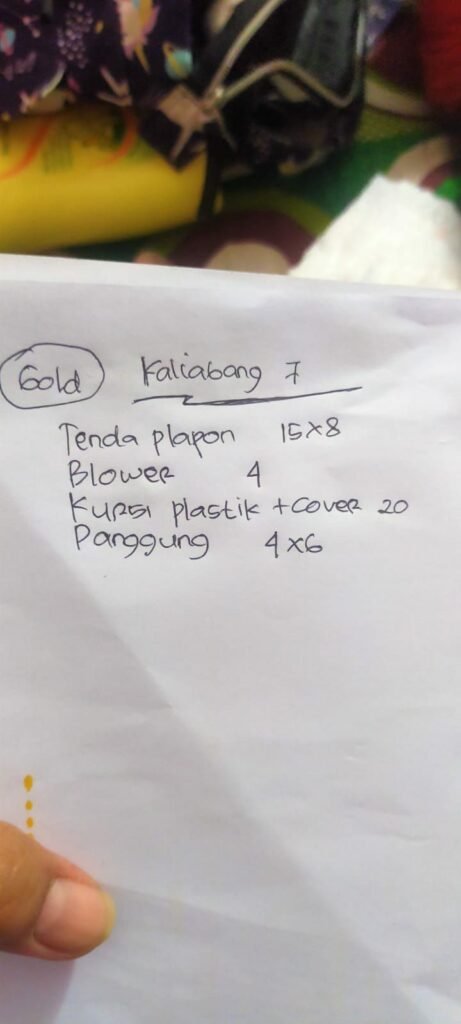 Gold Kaliabang 7
Tenda plapon 15x8
Blower 4
Kursi plastik + cover 20
Panggung 4x6